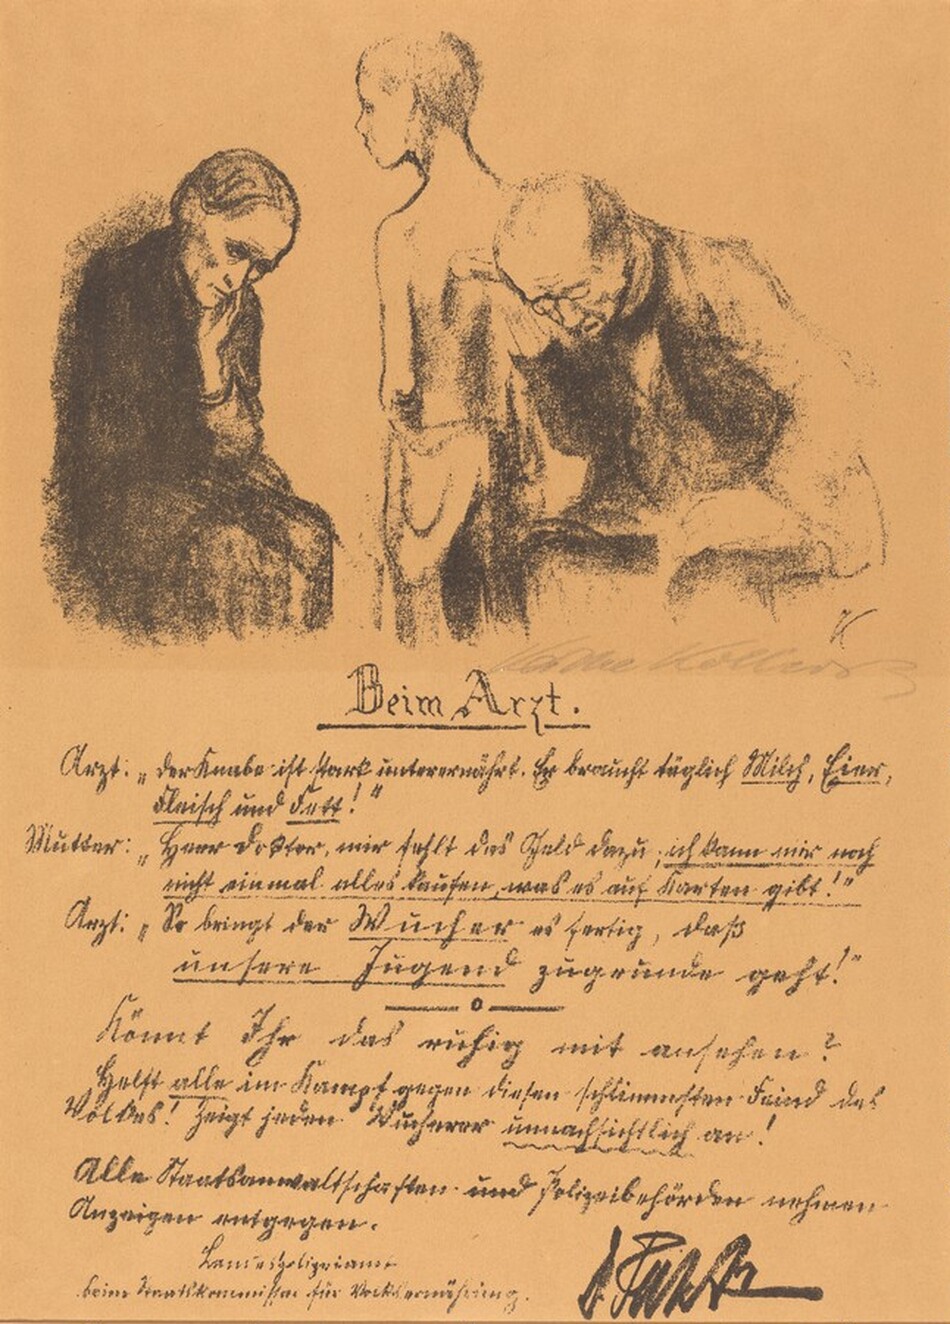 K
Käthe Kollwitz
Beim Arzt.
Arzt: „Der Knabe ist stark unterernährt. Er braucht täglich Milch, Eier,
Fleisch und Fett!“
Mutter: „Herr Doktor, mir fehlt das Geld dazu, ich kann mir noch
nicht einmal alles kaufen, was es auf Karten gibt!“
Arzt: „So bringt der Wucher es fertig, daß
unsere Jugend zugrunde geht!“
Könnt Ihr das ruhig mit ansehen?
Helft alle im Kampf gegen diesen schlimmsten Feind des
Volkes! Zeigt jeden Wucherer unnachsichtlich an!
Alle Staatsanwaltschaften und Polizeibehörden nehmen
Anzeigen entgegen.
Landespolizeiamt
beim Staatskommissar für Volksernährung.